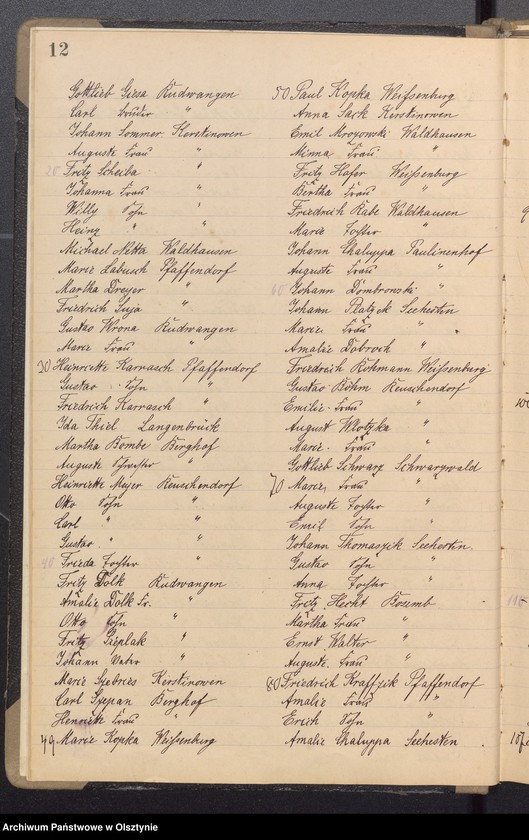 12
Gottlieb Giesa Kudwangen
Carl Bruder "
Johann Sommer Kerstinowen
Auguste Frau "
Fritz Scheiba "
Johanna Frau "
Willy Sohn "
Heinz " "
Michael Netta Waldhausen
Marie Labusch Pfaffendorf
Martha Dreyer "
Friedrich Suja "
Gustav Wrona Kudwangen
Marie Frau "
30 Heinriette Karrasch Pfaffendorf
Gustav Sohn "
Friedrich Karrasch "
Ida Thiel Langenbrück
Martha Bombe Berghof
Auguste Schwester "
Heinriette Meyer Reuschendorf
Otto Sohn "
Carl " "
Gustav " "
40 Frieda Tochter "
Fritz Dolk Kudwangen
Amalie Dolk Fr. "
Otto Sohn "
Fritz Gieplak "
Johann Vater "
Marie Kerstinowen
Carl Berghof
Henriette Frau "
49 Marie Kopka Weißenburg
50 Paul Kopka Weißenburg
Anna Sack Kerstinowen
Emil Mrozowski Waldhausen
Minna Frau "
Fritz Hofer Weißenburg
Bertha Frau "
Friedrich Kabe Waldhausen
Marie Tochter "
Johann Chaluppa Paulinenhof
Auguste Frau "
60 Johann Dombrowski "
Johann Platzek Seehesten
Marie Frau "
Amalie Dobroch "
Friedrich Rohmann Weißenburg
Gustav Böhm Reuschendorf
Emilie Frau "
August Wlotzka "
Marie Frau "
Gottlieb Schwarz Schwarzwald
70 Marie Frau "
Auguste Tochter "
Emil Sohn "
Johann Thomaszik Seehesten
Gustav Sohn "
Anna Tochter "
Fritz Hecht Bosemb
Martha Frau "
Ernst Walter "
Auguste Frau "
80 Friedrich Kraffzik Pfaffendorf
Amalie Frau "
Erich Sohn "
Amalie Chaluppa Seehesten
Archiwum Państwowe w Olsztynie